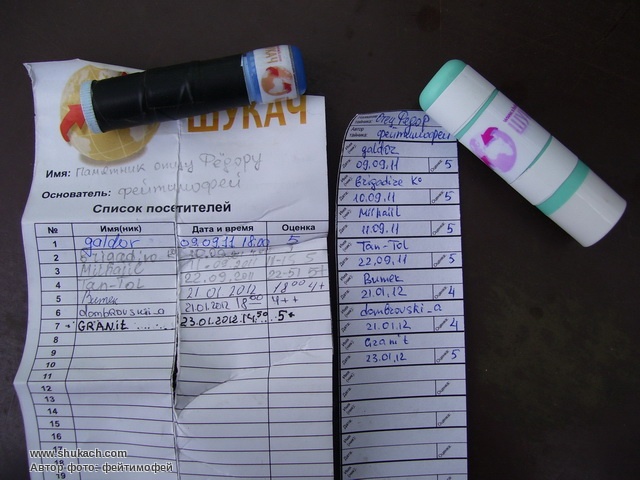 ШУКАЧ
ШУКАЧ
Имя: Памятник отцу Фёдору
Основатель: фейтимофей
Список посетителей
№ Имя(ник) Дата и время Оценка
1 galdor 09.09.11 18.00 5
2
3 Mihail
4 Tan-Tol 22.09.2011 22-51 5+
5 Bumek 21 01 2012 18 00 4+
6 dombrovski_a 21.01.2012 18 00 4++
7 GRANit 23.01.2012 14:50 5+
8
9
10
11
12
13
14
15
16
17
18
19
Отцу Фёдор
фейтимофей
galdor
09.09.11 5
Brigadize Ko
10.09.11 5
Mihail
11.09.11 5
Tan-Tol
22.09.11 5
Bumek
21.01.12 4
dombrovski_a
21.01.12 4
Granit
23.01.12 5
www.shukach.com
Автор фото-фейтимофей